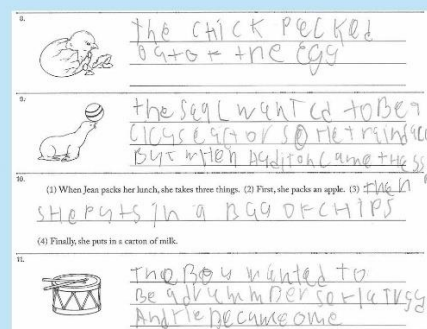 8.
the CHICK PeCKed
outof the Egg
9.
the Seal wanted to Be a
so He trained
But when Auditon came
10.
(1) When Jean packs her lunch, she takes three things. (2) First, she packs an apple. (3) then
SHe PutS in a BaG OF CHIPS
(4) Finally, she puts in a carton of milk.
11.
THe Boy wanted to
Be a drummer so
And He Became one